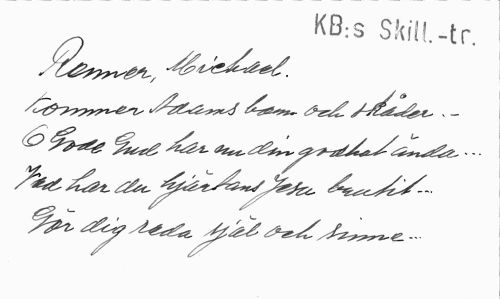 KB:s Skill.-tr.
Renner, Michael.
Kommer Adams barn och skåder.-
O Gode Gud har nu din godhet ända...
Vad har du hjärtans Jesu brutit...
Gör dig reda själ och sinne...